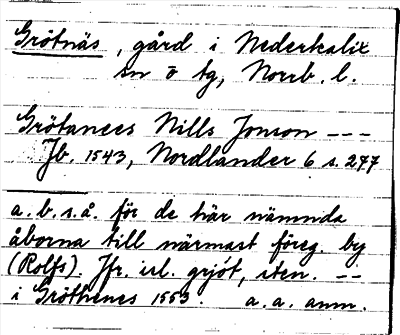 Grötnäs, gård i Nederkalix
sn o tg, Norrb. l.
Grötanees Nills Jonson ---
Jb. 1543, Nordlander 6 s. 277
a. b. s. å. för de här nämnda
åborna till närmast föreg. by
(Rolfs). Jfr. isl. grjót, sten. --
i Gröthenes 1553. a. a. anm.